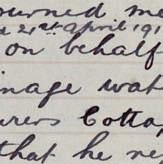 ourned me
d 21st April 191
on behalf
inage wat
urers Cotta
that he re